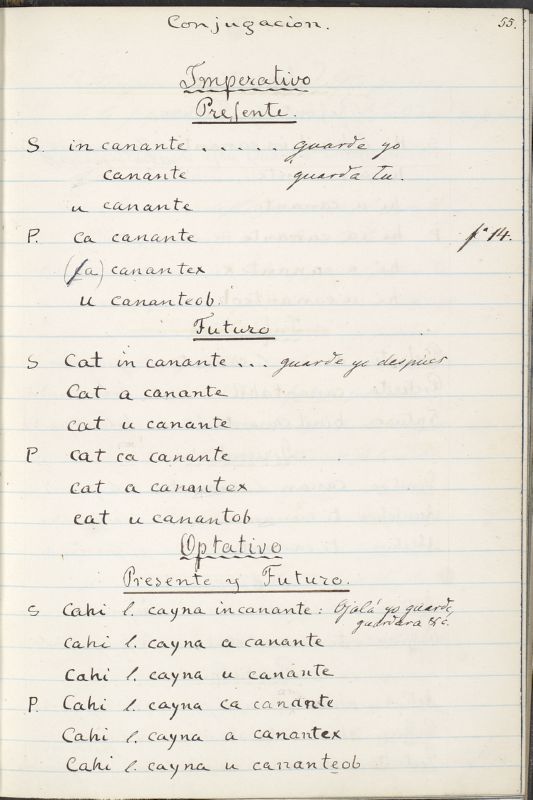 Conjugacion. 55.
Imperativo
Presente.
S. in canante . . . . . guarde yo
canante guarda tu.
u canante
P. ca canante fº 14.
(a) canantex
u cananteob.
Futuro
S Cat in canante ... guarde yo despues
Cat a canante
cat u canante
P cat ca canante
cat a canantex
cat u canantob
Optativo
Presente y Futuro.
S Cahi l. cayna in canante: Ojalá yo guarde,
guardara &c.
cahi l. cayna a canante
Cahi l. cayna u canante
P. Cahi l. cayna ca canante
Cahi l. cayna a canantex
Cahi l. cayna u cananteob